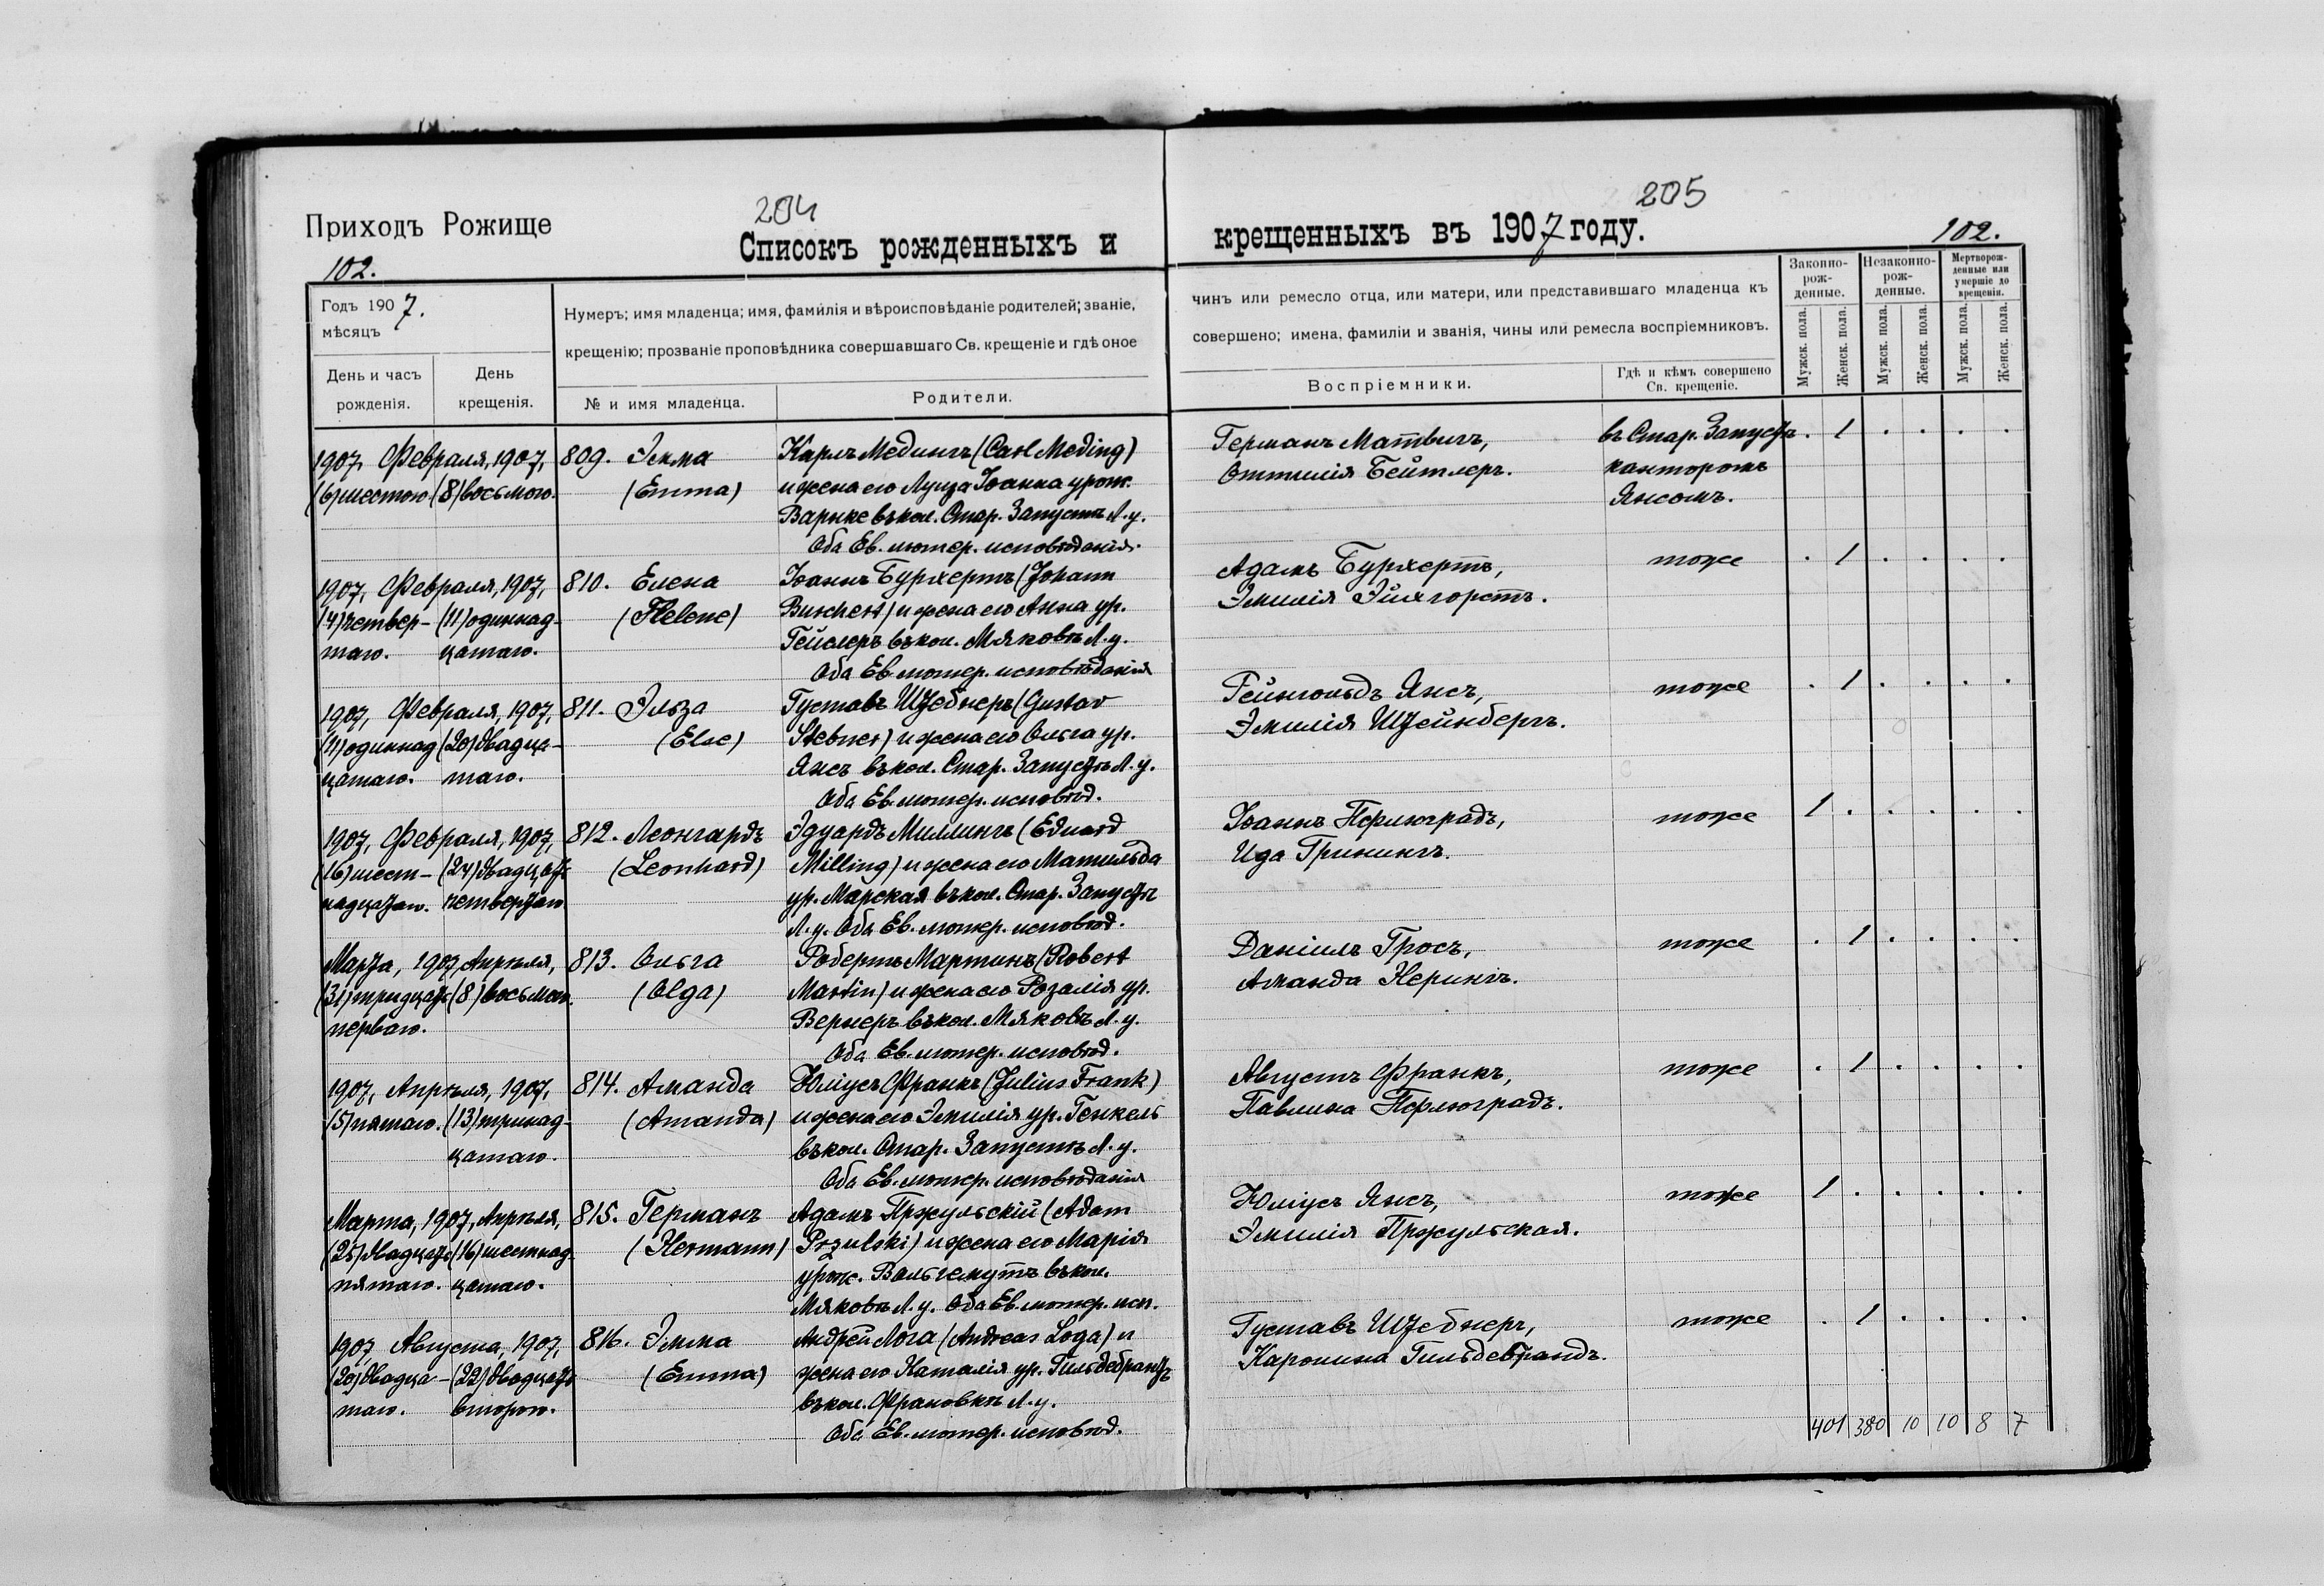 Приходъ Рожище
204
Списокъ рожденныхъ и
102.
Годъ 1907.
мѣсяцъ
День и часъ
рожденія.
День
крещенія.
Нумеръ; имя младенца; имя, фамилія и вѣроисповѣданіе родителей; званіе,
крещенію; прозваніе проповѣдника совершавшаго Св. крещеніе и гдѣ оное
№ и имя младенца.
Родители.
1907, Февраля, 1907, 809. Эмма Карлъ Медингъ (Carl Meding)
(6) шестого (8) восьмого. (Emma) и жена его Луиза Іоанна урож.
Варнке въ кол. Стар. Запустъ Л. у.
Оба Ев. лютер. исповѣданія.
1907, Февраля, 1907, 810. Елена Іоаннъ Бурхертъ (Johann
(4) четвер- (11) одиннад- (Helene) Burchert) и жена его Анна ур.
таго. цатаго. Гейслеръ въ кол. Мяковъ Л. у.
Оба Ев. лютер. исповѣданія
1907, Февраля, 1907, 811. Эльза Густавъ Штебнеръ (Gustav
(11) одиннад (20) двадца- (Else) Stebner) и жена его Ольга ур.
цатаго. таго. Янсъ въ кол. Стар. Запустъ Л. у.
Оба Ев. лютер. исповѣд.
1907, Февраля, 1907, 812. Леонгардъ Эдуардъ Миллингъ (Eduard
(16) шест- (24) двадцать (Leonhard) Milling) и жена его Матильда
надцатаго. четвертаго ур. Марская въ кол. Стар. Запустъ
Л. у. Оба Ев. лютер. исповѣд.
Марта, 1907, Апрѣля, 813. Ольга Робертъ Мартинъ (Robert
(31) тридцать (8) восьмого. (Olga) Martin) и жена его Розалія ур.
перваго. Вернеръ въ кол. Мяковъ Л. у.
Оба Ев. лютер. исповѣд.
1907, Апрѣля, 1907, 814. Аманда Юліусъ Франкъ (Julius Frank)
(5) пятаго. (13) тринад- (Amanda) и жена его Эмилія ур. Генкель
цатаго. въ кол. Стар. Запустъ Л. у.
Оба Ев. лютер. исповѣданія
Марта, 1907, Апрѣля, 815. Германъ Адамъ Пржульскій (Adam
(25) двадцать (16) шестнад- (Hermann) Przulski) и жена его Марія
пятаго. цатаго. урож. Вольгемутъ въ кол.
Мяковъ Л. у. Оба Ев. лютер. исп.
1907 Августа, 1907, 816. Эмма Андрей Лога (Andreas Loga) и
(20) двадца- (22) двадцать (Emma) жена его Наталія ур. Гильдебрандъ
таго. второго. въ кол. Франовкѣ Л. у.
Оба Ев. лютер. исповѣд.
205
крещенныхъ въ 1907 году.
102.
чинъ или ремесло отца, или матери, или представившаго младенца къ
совершено; имена, фамиліи и званія, чины или ремесла воспріемниковъ.
Воспріемники.
Гдѣ и кѣмъ совершено
Св. крещеніе.
Законно-
рож-
денные.
Незаконно-
рож-
денные.
Мертворож-
денные или
умершіе до
крещенія.
Мужск. пола.
Женск. пола.
Мужск. пола.
Женск. пола.
Мужск. пола.
Женск. пола.
въ Стар. Запустѣ . 1 . . . .
Оттилія Бейтлеръ. канторомъ
Янсомъ.
Адамъ Бурхертъ, тоже . 1 . . . .
Эмилія Эйхгорстъ.
Рейнгольдъ Янсъ, тоже . 1 . . . .
Эмилія Штейнбергъ.
Іоаннъ Пфлюградъ, тоже 1 . . . . .
Ида Грикингъ.
Даніилъ Гросъ, тоже . 1 . . . .
Аманда Нерингъ.
Августъ Франкъ, тоже . 1 . . . .
Павлина Пфлюградъ.
Юліусъ Янсъ, тоже 1 . . . . .
Эмилія Пржульская.
Густавъ Штебнеръ, тоже . 1 . . . .
Каролина Гильдебрандъ.
401 380 10 10 8 7